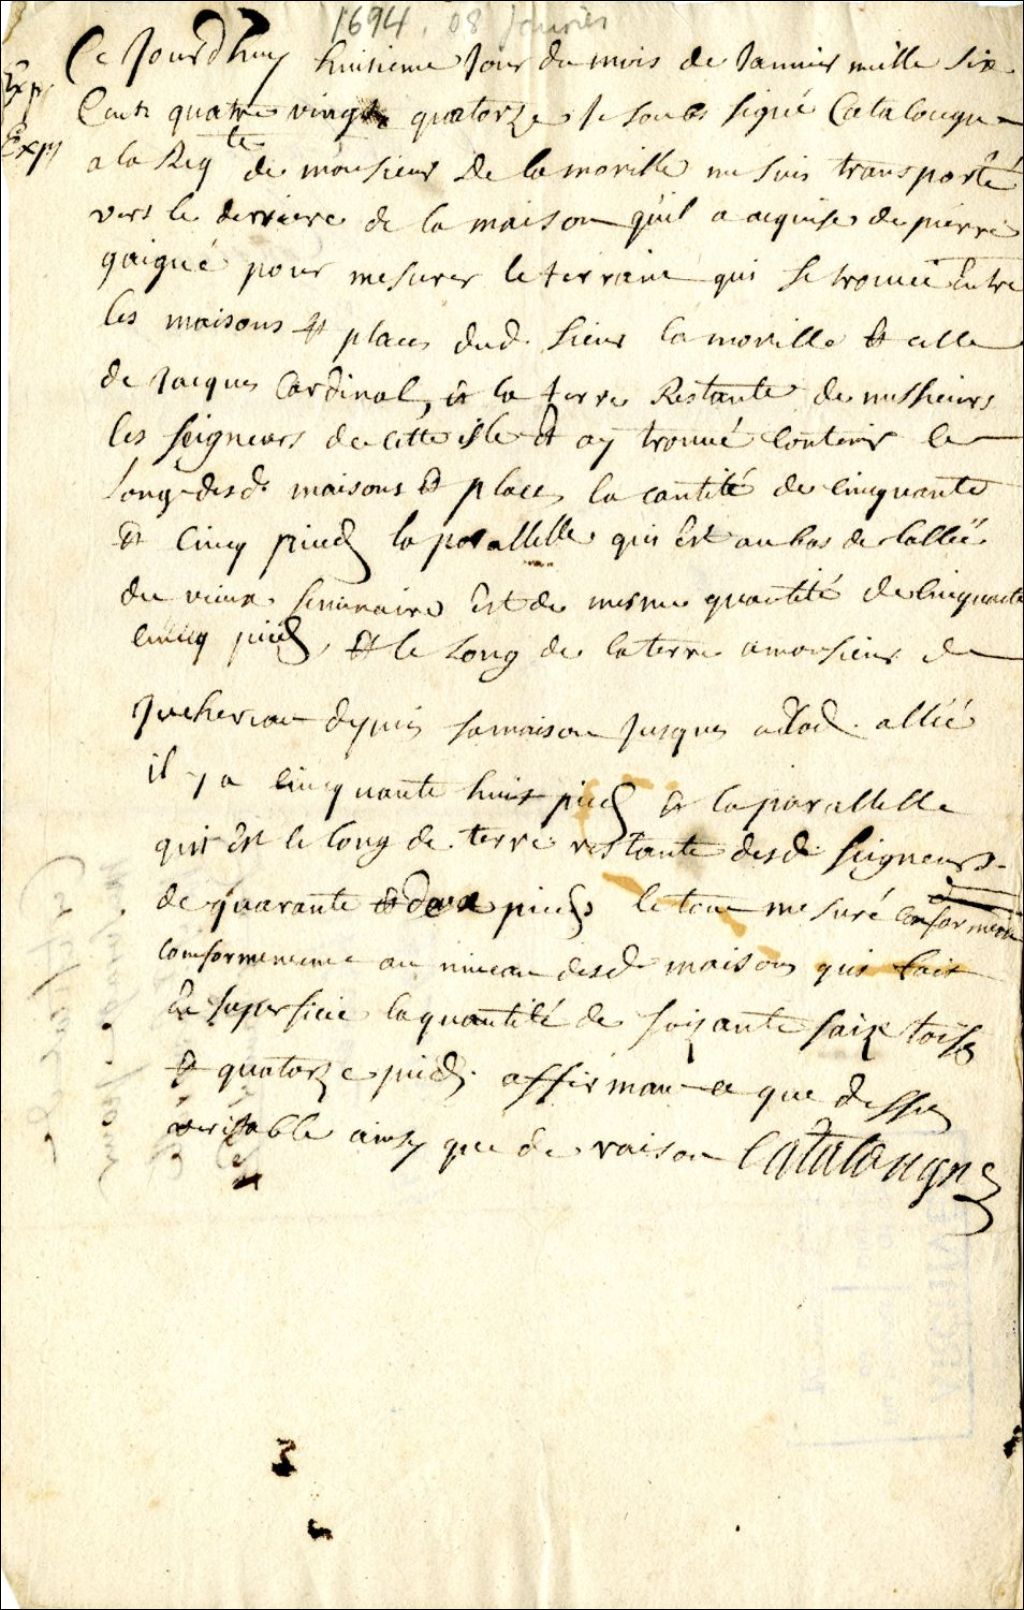 1694. 08 Janvier
Exp
Exp
Ce Jourdhuy huitieme Jour du mois de Janvier mille six
Cents quatre vingts quatorze Je soubs signé Catalougne
a la Reqte de monsieur de lamorille me suis transporté
vers le derriere de la maison qu'il a acquise de pierre
gaigné pour mesurer le terrain qui se trouve Entre
les maisons et places dud. sieur lamorille et celle
de Jacques Cardinal, et la terre Restante de messieurs
les seigneurs de cette isle et ay trouvé Contenir le
long desd. maisons et place, la cantité de Cinquante
et Cinq pieds la parallelle qui Est au bas de lallée
du vieux seminaire Est de mesme quantité de Cinquante
Cincq pieds, et le Long de la terre a monsieur de
Juchereau depuis sa maison Jusques a lad. allée
il y a Cinquante huit pieds et la parallelle
qui Est le long de terre restante desd. seigneurs
de quarante et deux pieds le tout mesuré Conformem
conformement au niveau desd. maisons qui fait
En superficie la quantité de soixante saize toises
et quatorze pieds. affirmant ce que dessus
veritable ainsy que de raison Catalougne
ARCHIVE